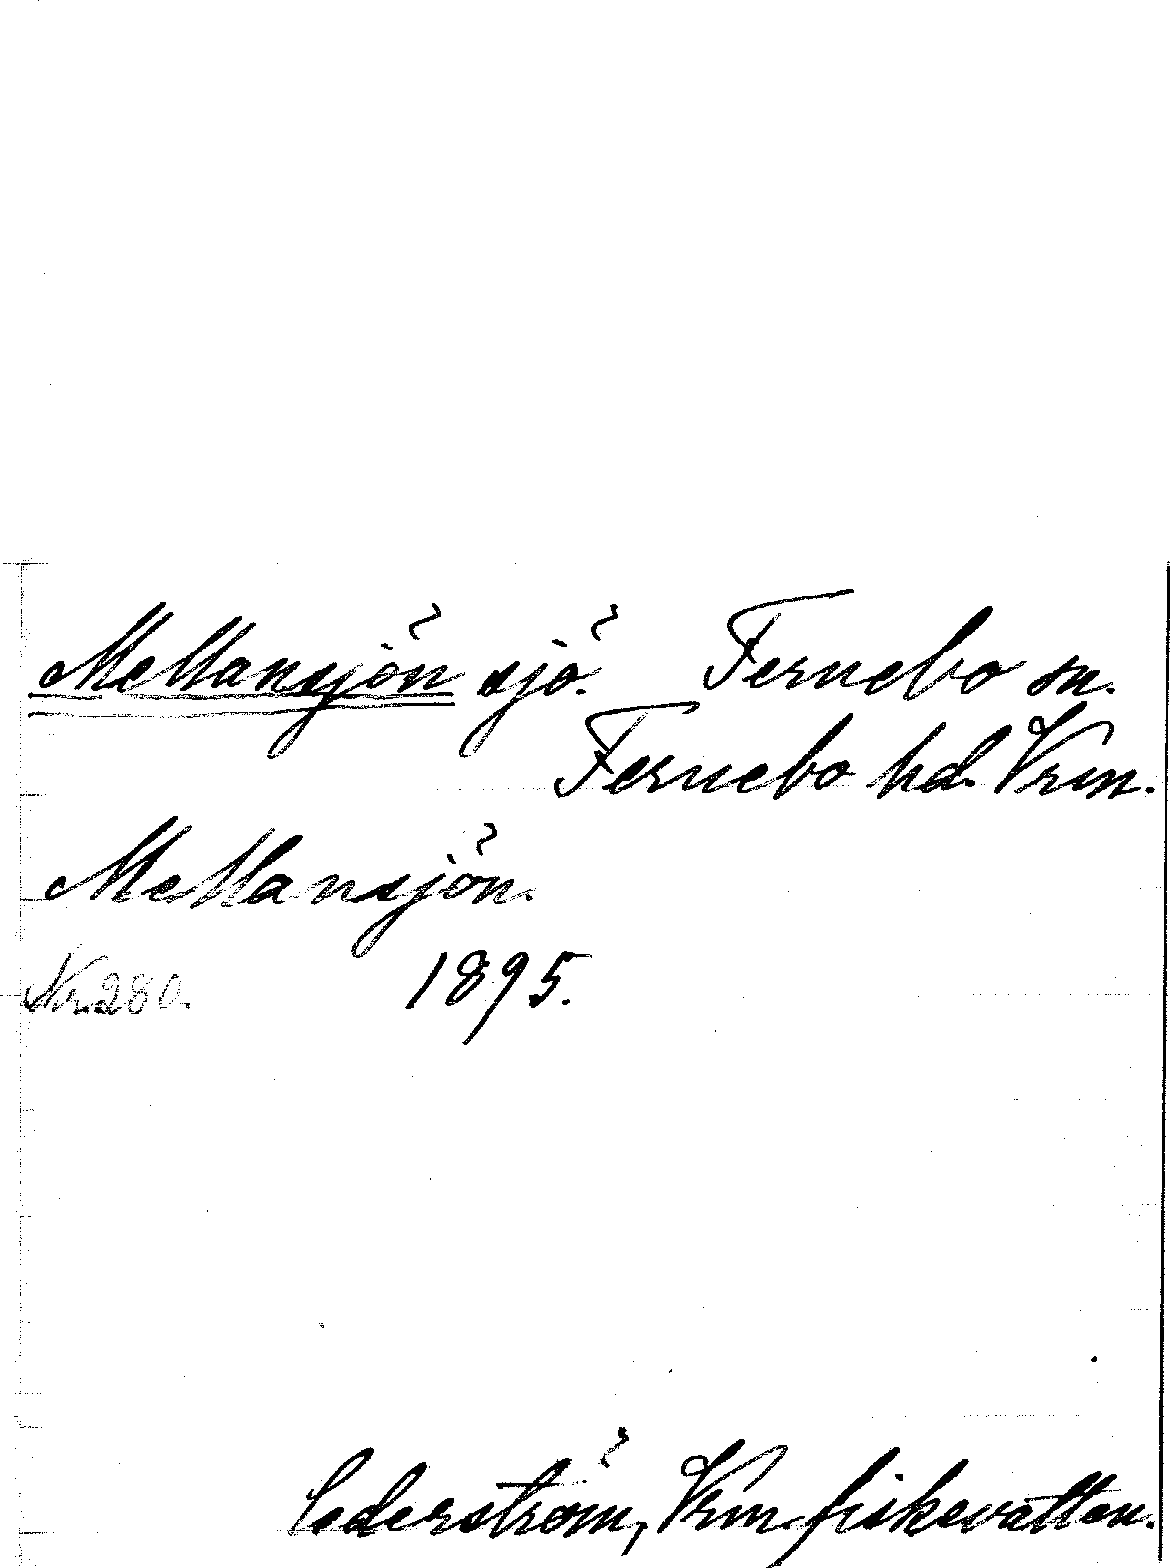 Mellansjön sjö. Fernebo sn.
Fernebo hd. Vrm.
Mellansjön.
Nr. 280. 1895.
Cederström, Vrm. fiskevatten.